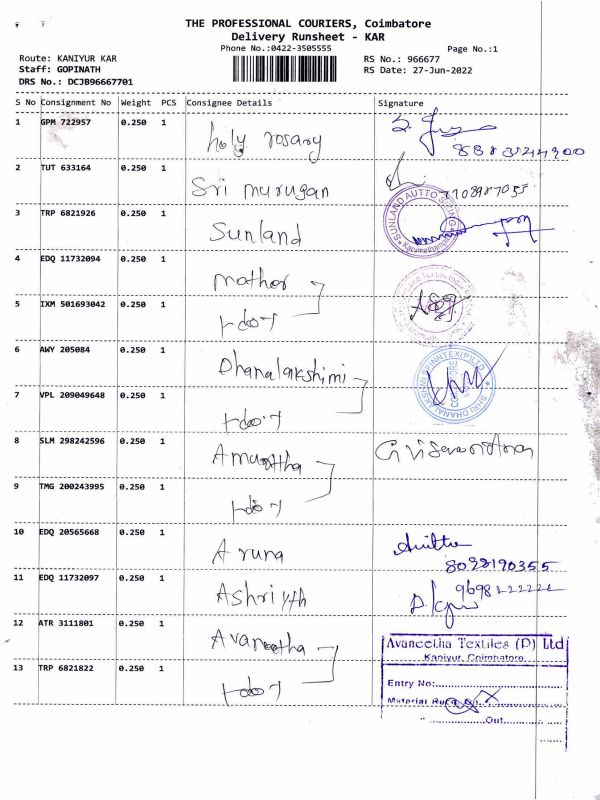 THE PROFESSIONAL COURIERS, Coimbatore
Delivery Runsheet - KAR
Phone No.:0422-3505555
Page No.:1
Route: KANIYUR KAR
RS No.: 966677
Staff: GOPINATH
RS Date: 27-Jun-2022
DRS No.: DCJB96667701
S No Consignment No Weight PCS Consignee Details Signature
1 GPM 722957 0.250 1 holy rosary
2 TUT 633164 0.250 1 Sri murugan
3 TRP 6821926 0.250 1 Sunland
4 EDQ 11732094 0.250 1 mother
5 IXM 501693042 0.250 1 -do-
6 AWY 205084 0.250 1 Dhanalakshimi
7 VPL 209049648 0.250 1 -do-
8 SLM 298242596 0.250 1
9 TMG 200243995 0.250 1 -do-
10 EDQ 20565668 0.250 1 Aruna
8098190355
11 EDQ 11732097 0.250 1
12 ATR 3111801 0.250 1 Avaneetha
13 TRP 6821822 0.250 1 -do-
SUNLAND AUTTO SPING
Avaneetha Textiles (P) Ltd
Kaniyur, Coimbatore.
Entry No:
Material
Out